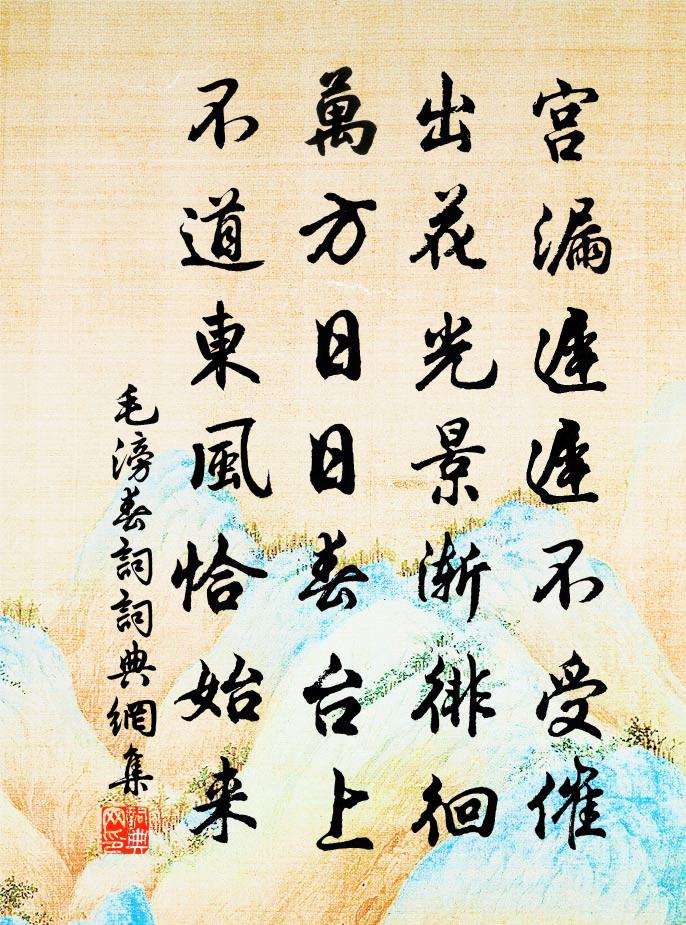 宫漏遲遲不受催
出花光景漸徘徊
萬方日日春台上
不道東風恰始来
毛滂春詞詞典網集
詞典網印